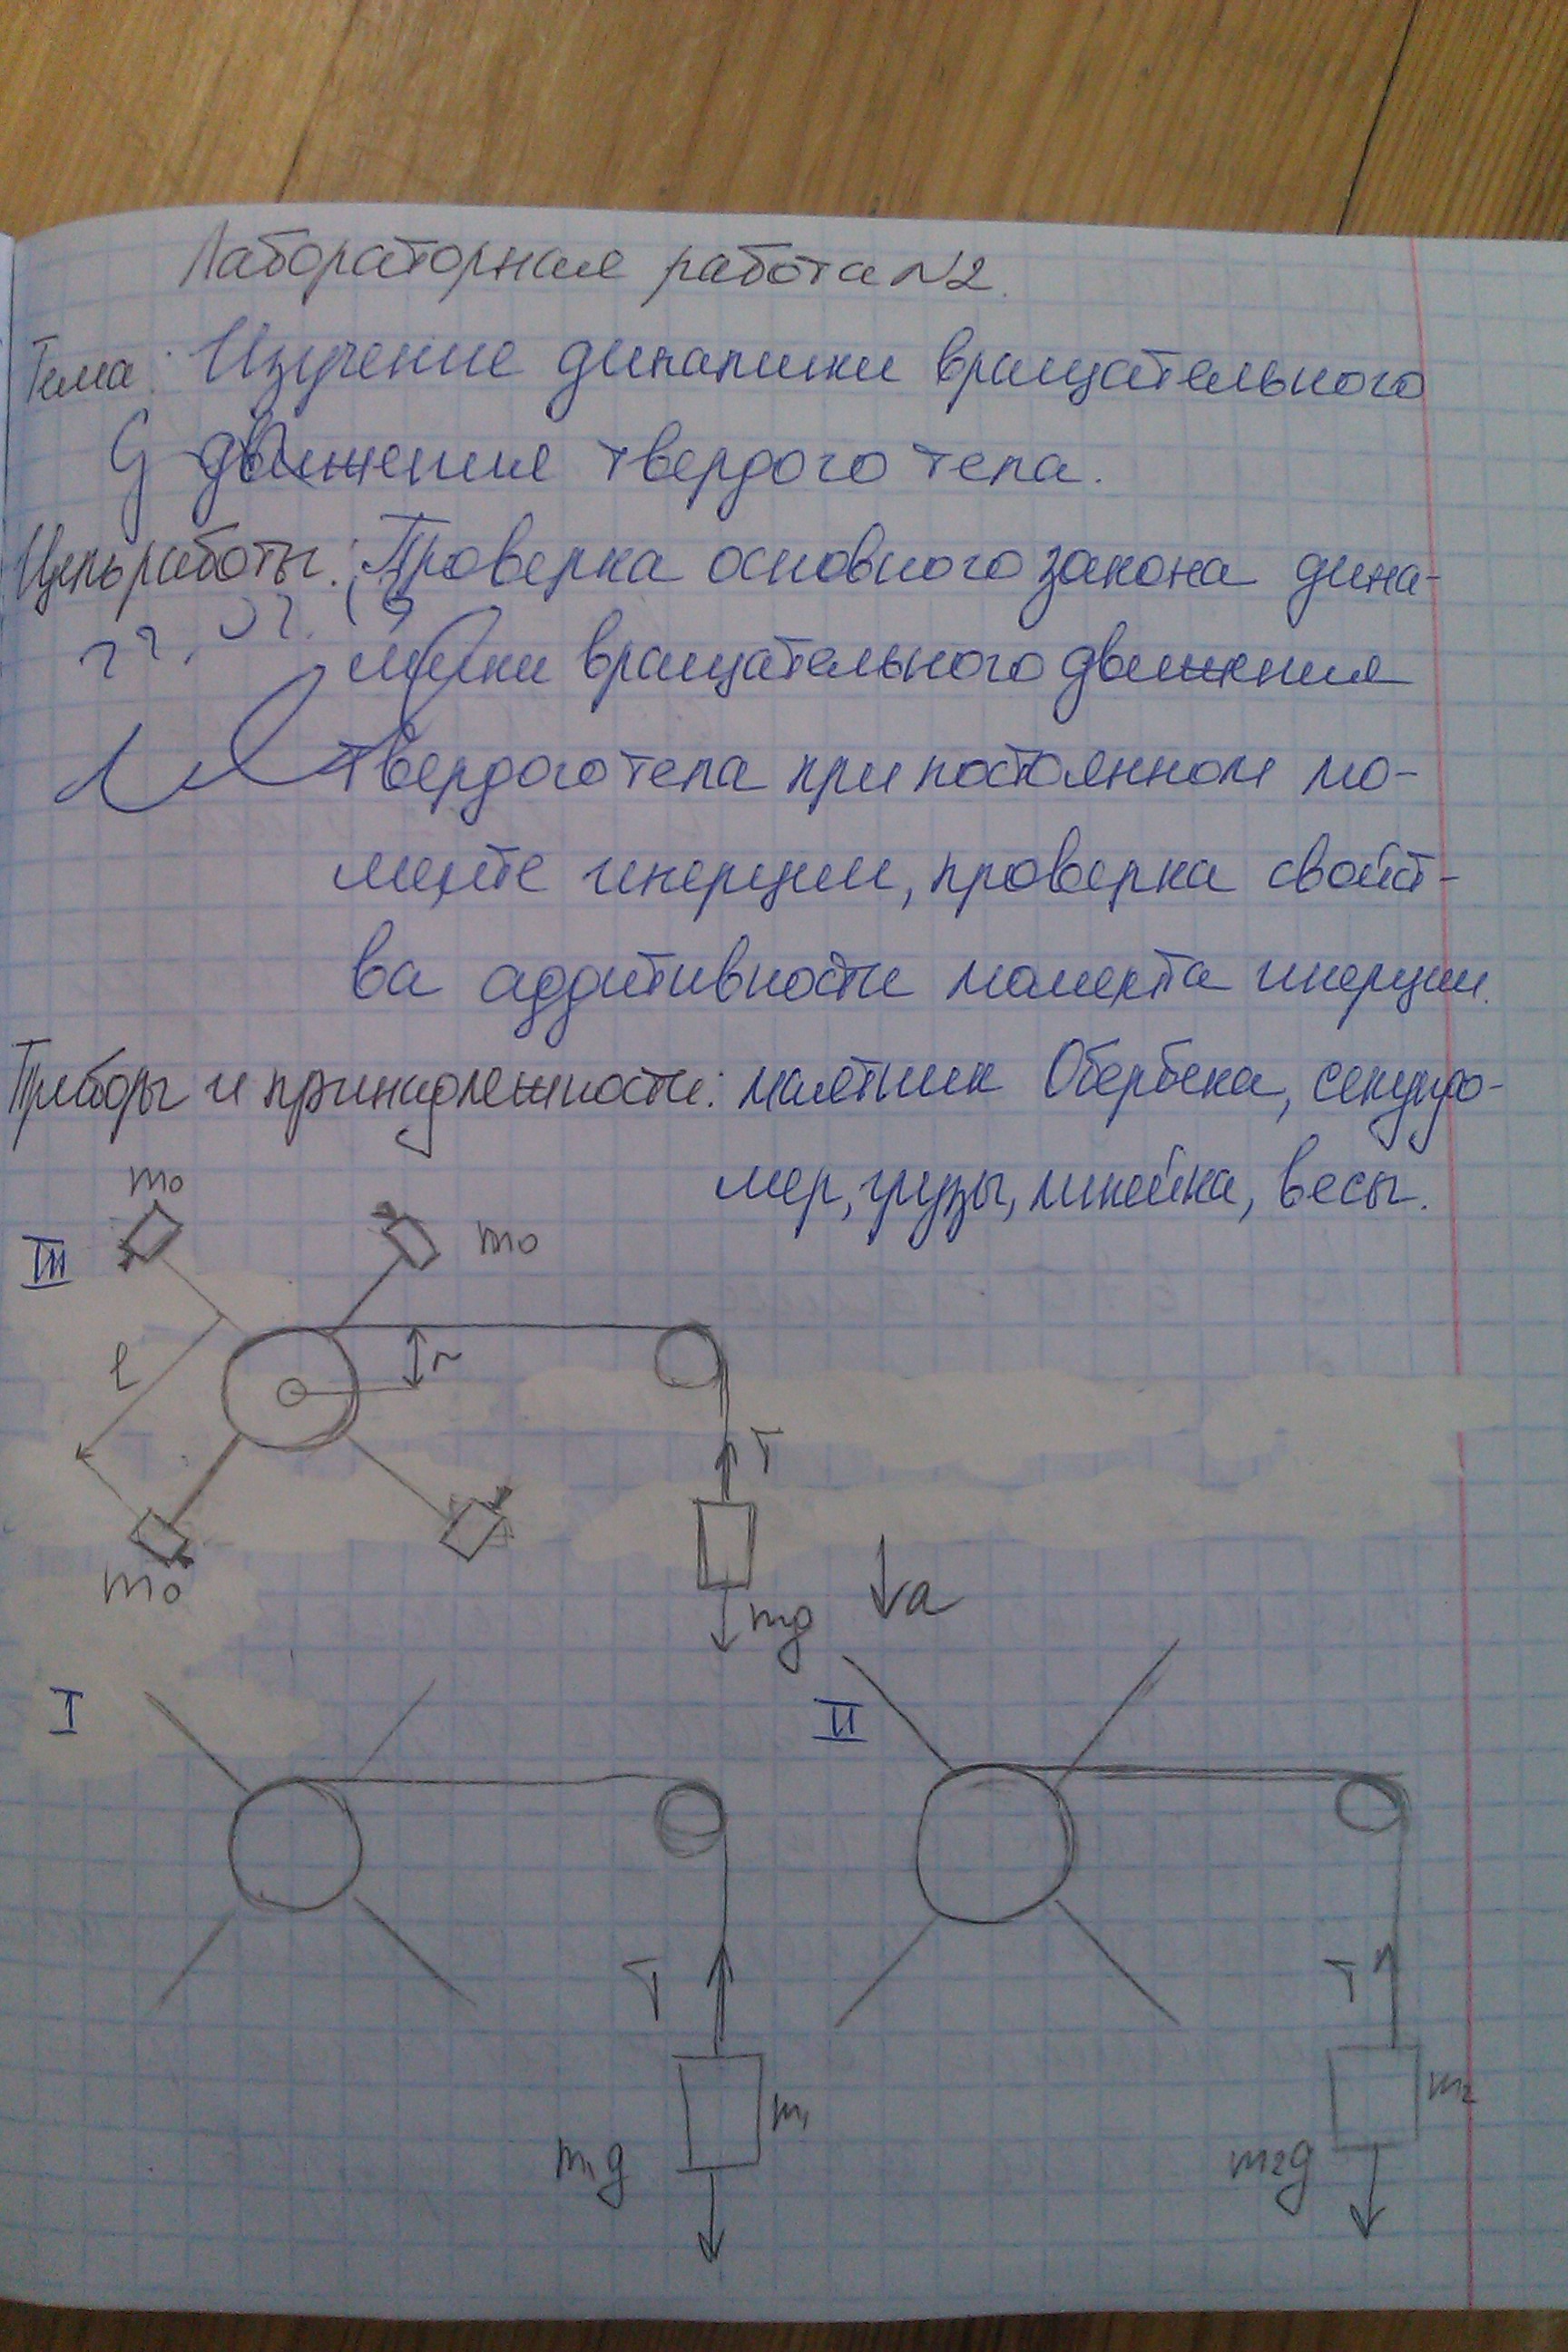 Лабораторная работа №2.
Тема: Изучение динамики вращательного
движения твердого тела.
Цель работы: Проверка основного закона дина-
мики вращательного движения
твердого тела при постоянном мо-
менте инерции, проверка свойст-
ва аддитивности момента инерции.
Приборы и принадлежности: маятник Обербека, секундо-
мер, грузы, линейка, весы.
m₀
III
m₀
l
r
T
m₀
mg
a
I
II
T
T
m₁
m₂
m₁g
m₂g